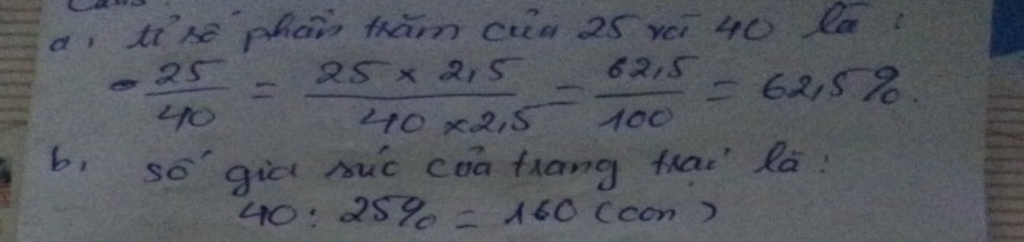 a, tỉ số phần trăm của 25 với 40 là :
25/40 = 25 × 2,5 / 40 × 2,5 = 62,5/100 = 62,5%.
b, số gia súc của trang trại là :
40 : 25% = 160 (con)